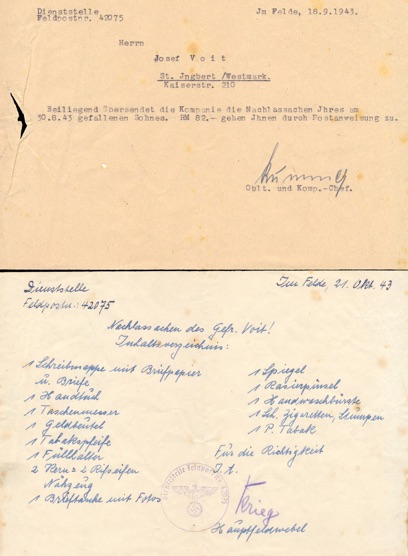 Dienststelle
Feldpostnr. 42075
Jm Felde, 18.9.1943.
Herrn
Josef Voit
St. Jngbert /Westmark.
Kaiserstr. 210
Beiliegend übersendet die Kompanie die Nachlassachen Jhres am
30.8.43 gefallenen Sohnes. RM 82.- gehen Jhnen durch Postanweisung zu.
Oblt. und Komp.-Chef.
Dienststelle
Feldpostnr.: 42075
Im Felde, 21. Okt. 43
Nachlassachen des Gefr. Voit!
Inhaltsverzeichnis:
1 Schreibmappe mit Briefpapier
u. Briefe
1 Handtuch
1 Taschenmesser
1 Geldbeutel
1 Tabakspfeife
1 Füllhalter
2 Kern= 2 Rifseifen
Nähzeug
1 Brieftasche mit Fotos
1 Spiegel
1 Rasierpinsel
1 Handwaschbürste
1 Sch. Zigaretten, Stumpen
1 P. Tabak
Für die Richtigkeit
I. A.
Krieg
Hauptfeldwebel